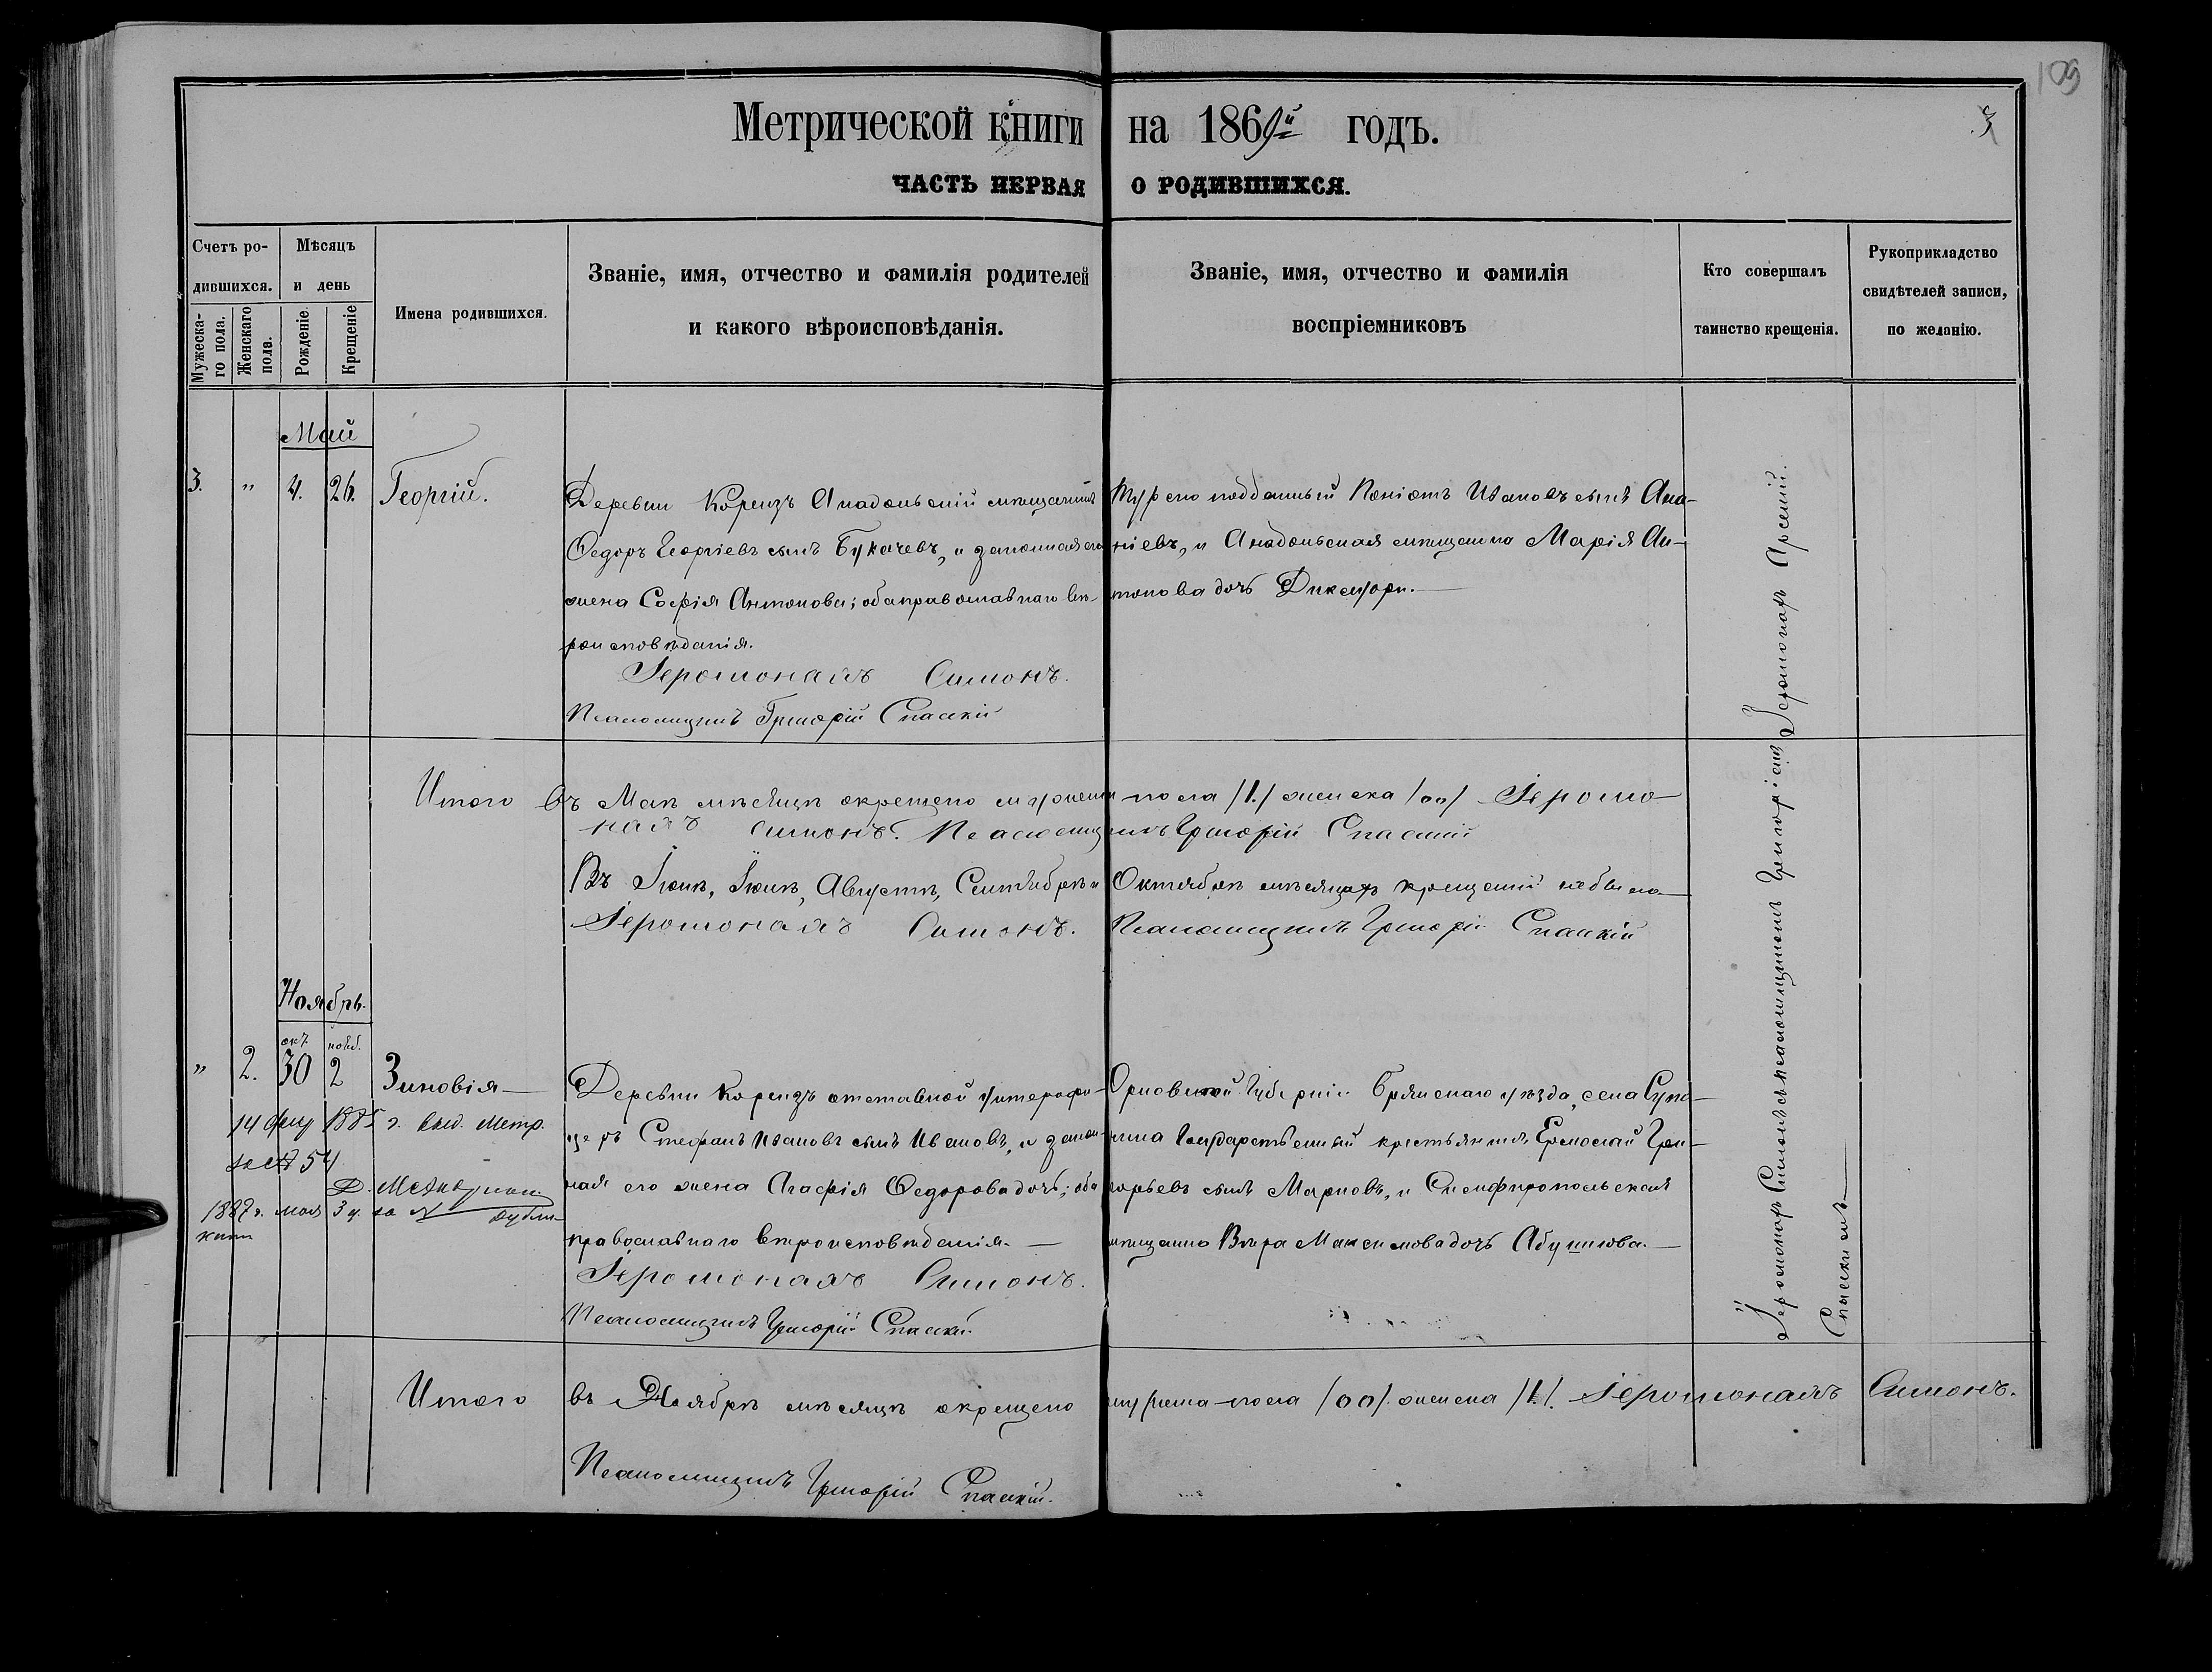 109
3
Метрической книги на 1869й годъ.
ЧАСТЬ ПЕРВАЯ О РОДИВШИХСЯ.
Счетъ ро-
дившихся.
Мужеска-
го пола.
Женскаго
пола.
Мѣсяцъ
и день
Рожденіе.
Крещеніе
Имена родившихся.
Званіе, имя, отчество и фамилія родителей
и какого вѣроисповѣданія.
Званіе, имя, отчество и фамилія
воспріемниковъ
Кто совершалъ
таинство крещенія.
Рукоприкладство
свидѣтелей записи,
по желанію.
Май
3. " 4. 26. Георгій.
Деревни Кореизъ Анадольскій мѣщанинъ
Ѳедоръ Георгіевъ сынъ Букачевъ, и законная его
жена Софія Антонова; оба православнаго вѣ-
роисповѣданія.
Іеромонахъ Симонъ.
Псаломщикъ Григорій Спаскій
Турскоподданный Ивановъ сынъ Ана-
ніевъ, и Анадольская мѣщанка Марія Ан-
тонова дочь
Іеромонахъ Арсеній.
Итого въ Маѣ мѣсяцѣ окрещено мужеска пола /1./ женска /оо/ Іеромо
нахъ Симонъ. Псаломщикъ Григорій Спаскій
Въ Іюнѣ, Іюлѣ, Августѣ, Сентябрѣ и Октябрѣ мѣсяцахъ крещеній небыло
Іеромонахъ Симонъ. Псаломщикъ Григорій Спаскій
Ноябрь.
окт. нояб.
" 2. 30 2 Зиновія
14 1885 г. выд. метр.
за № 54
1887 г. мая 3 ч. за № дубли-
катъ
Деревни Кореизъ отставной унтерофи-
церъ Стефанъ Ивановъ сынъ Ивановъ, и закон-
ная его жена Агафія Ѳедорова дочь; оба
православнаго вѣроисповѣданія.
Іеромонахъ Симонъ.
Псаломщикъ Григорій Спаскій
Орловской Губерніи Брянскаго уѣзда, села Супо-
нина Государственный крестьянинъ, Ермолай Гри-
горьевъ сынъ Марковъ, и Симферопольская
мѣщанка Вѣра Максимова дочь
Іеромонахъ Симонъ съ псаломщикомъ Григоріемъ
Спаскимъ
Итого въ Ноябрѣ мѣсяцѣ окрещено мужеска пола /оо/. женска /1./. Іеромонахъ Симонъ.
Псаломщикъ Григорій Спаскій.